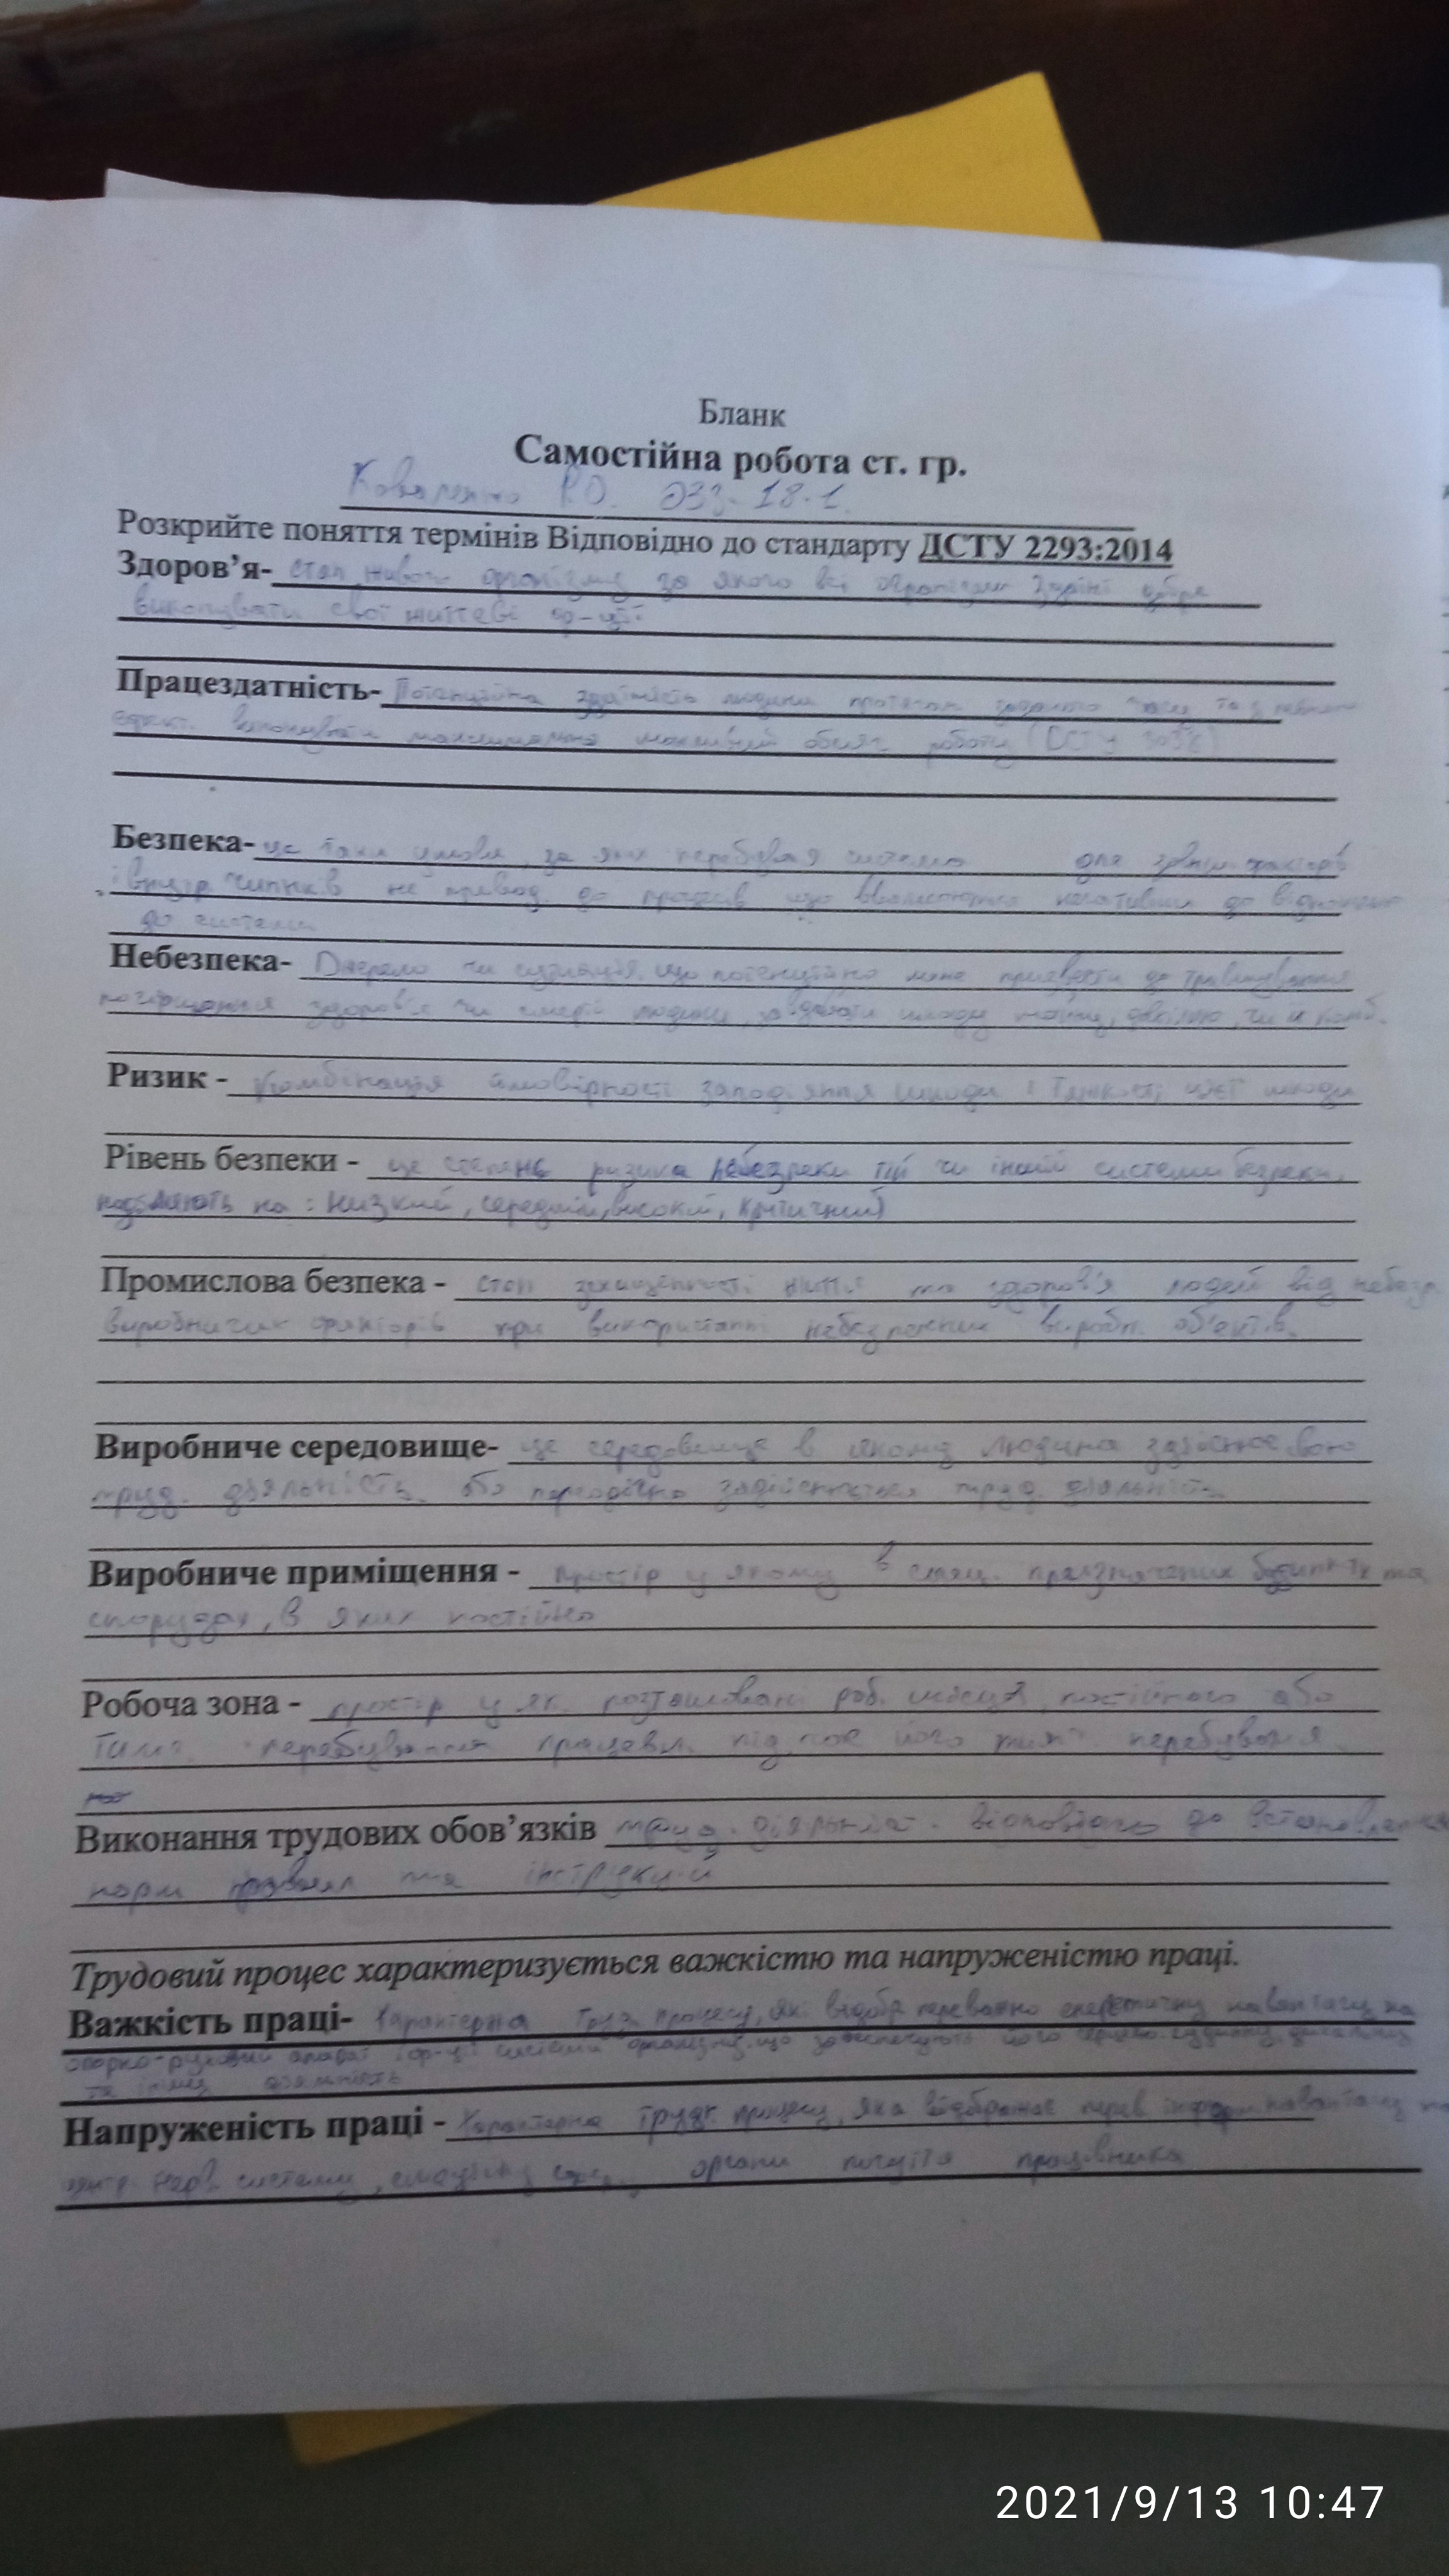 Бланк
Самостійна робота ст. гр.
Коваленко Р.О. ЭЗз-18-1.
Розкрийте поняття термінів Відповідно до стандарту ДСТУ 2293:2014
Здоров'я- стан живого організму за якого всі здатні добре
виконувати свої життєві ф-ції
Працездатність- Потенційна здатність людини протягом заданого часу та з певною
ефект. виконувати максимально можливий обсяг роботи (ДСТУ
Безпека- це такі умови, за яких перебуває система для зовніш. факторів
і внутр чинників не привод. до процесів що вважаються негативними до відношенню
до системи
Небезпека- Джерело чи ситуація, що потенційно може призвести до травмування
погіршення здоров'я чи смерті людини, завдавати шкоду майну, довкіллю, чи їх комб.
Ризик - комбінація ймовірності заподіяння шкоди і тяжкості цієї шкоди
Рівень безпеки - це степень ризика небезпеки тій чи іншій системи безпеки.
поділяють на : низкий, середній, високий, критичний)
Промислова безпека - стан захищеності життя та здоров'я людей від небезп
виробничих факторів при використанні небезпечних виробн. об'єктів.
Виробниче середовище- це середовище в якому людина здійснює свою
труд. діяльність. або періодично здійснюється труд. діяльність
Виробниче приміщення - простір у якому в спец. призначених будинках та
спорудах, в яких постійно
Робоча зона - простір у як. розташовані роб. місця постійного або
тимч. перебування працівн. під час його перебування
Виконання трудових обов'язків труд. діяльніст. відповідно до встановлених
норм правил та інструкцій
Трудовий процес характеризується важкістю та напруженістю праці.
Важкість праці- Характерна труд. процесу, які відобр переважно енергетичну навантажу на
опорно-руховий апарат і ф-ції системи організму, що забезпечують його серцево-судинну, дихальну
та інші діяльність
Напруженість праці - Характерна трудк процесу, яка відображає перев інформ навантажу на
центр нерв. систему, органи почуття працівника
2021/9/13 10:47